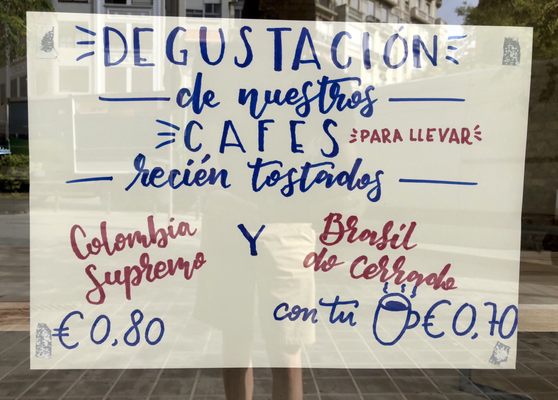 DEGUSTACIÓN
de nuestros
CAFES PARA LLEVAR
recién tostados
Colombia Supremo
Y
Brasil do Cerrado
€0.80
con tu €0,70